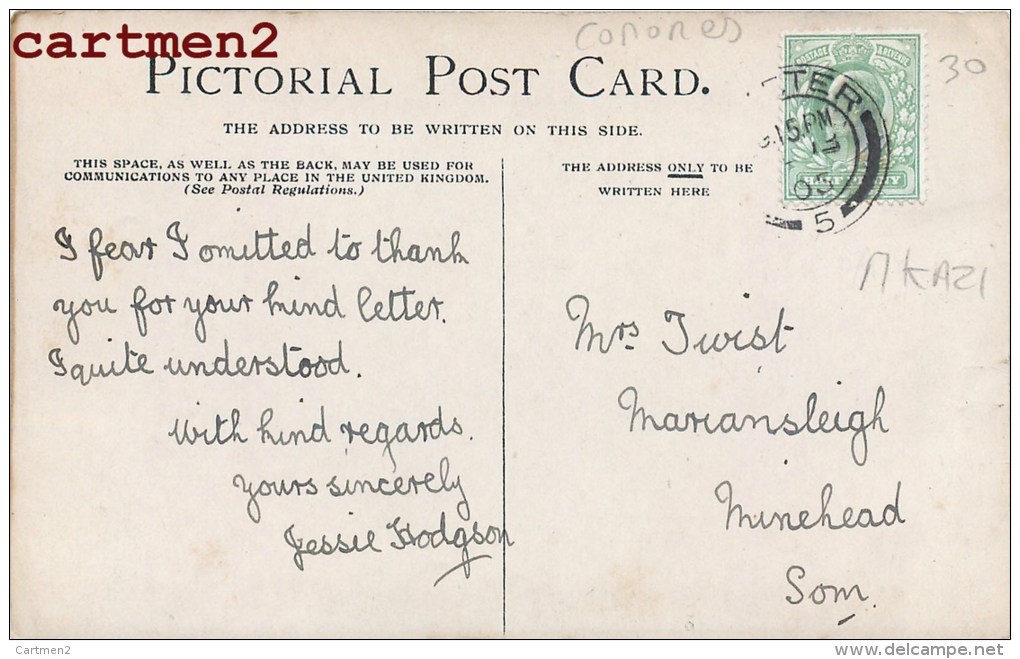 cartmen2
Comores
30
PICTORIAL POST CARD.
THE ADDRESS TO BE WRITTEN ON THIS SIDE.
THIS SPACE, AS WELL AS THE BACK, MAY BE USED FOR
COMMUNICATIONS TO ANY PLACE IN THE UNITED KINGDOM.
(See Postal Regulations.)
I fear I omitted to thank
you for your kind letter.
I quite understood.
With kind regards.
Yours sincerely
Jessie Hodgson
THE ADDRESS ONLY TO BE
WRITTEN HERE
POSTAGE & REVENUE
ETER
8.15 PM
05
5
MKAZI
Mrs Twist
Mariansleigh
Minehead
Som.
Cartmen2
www.delcampe.net